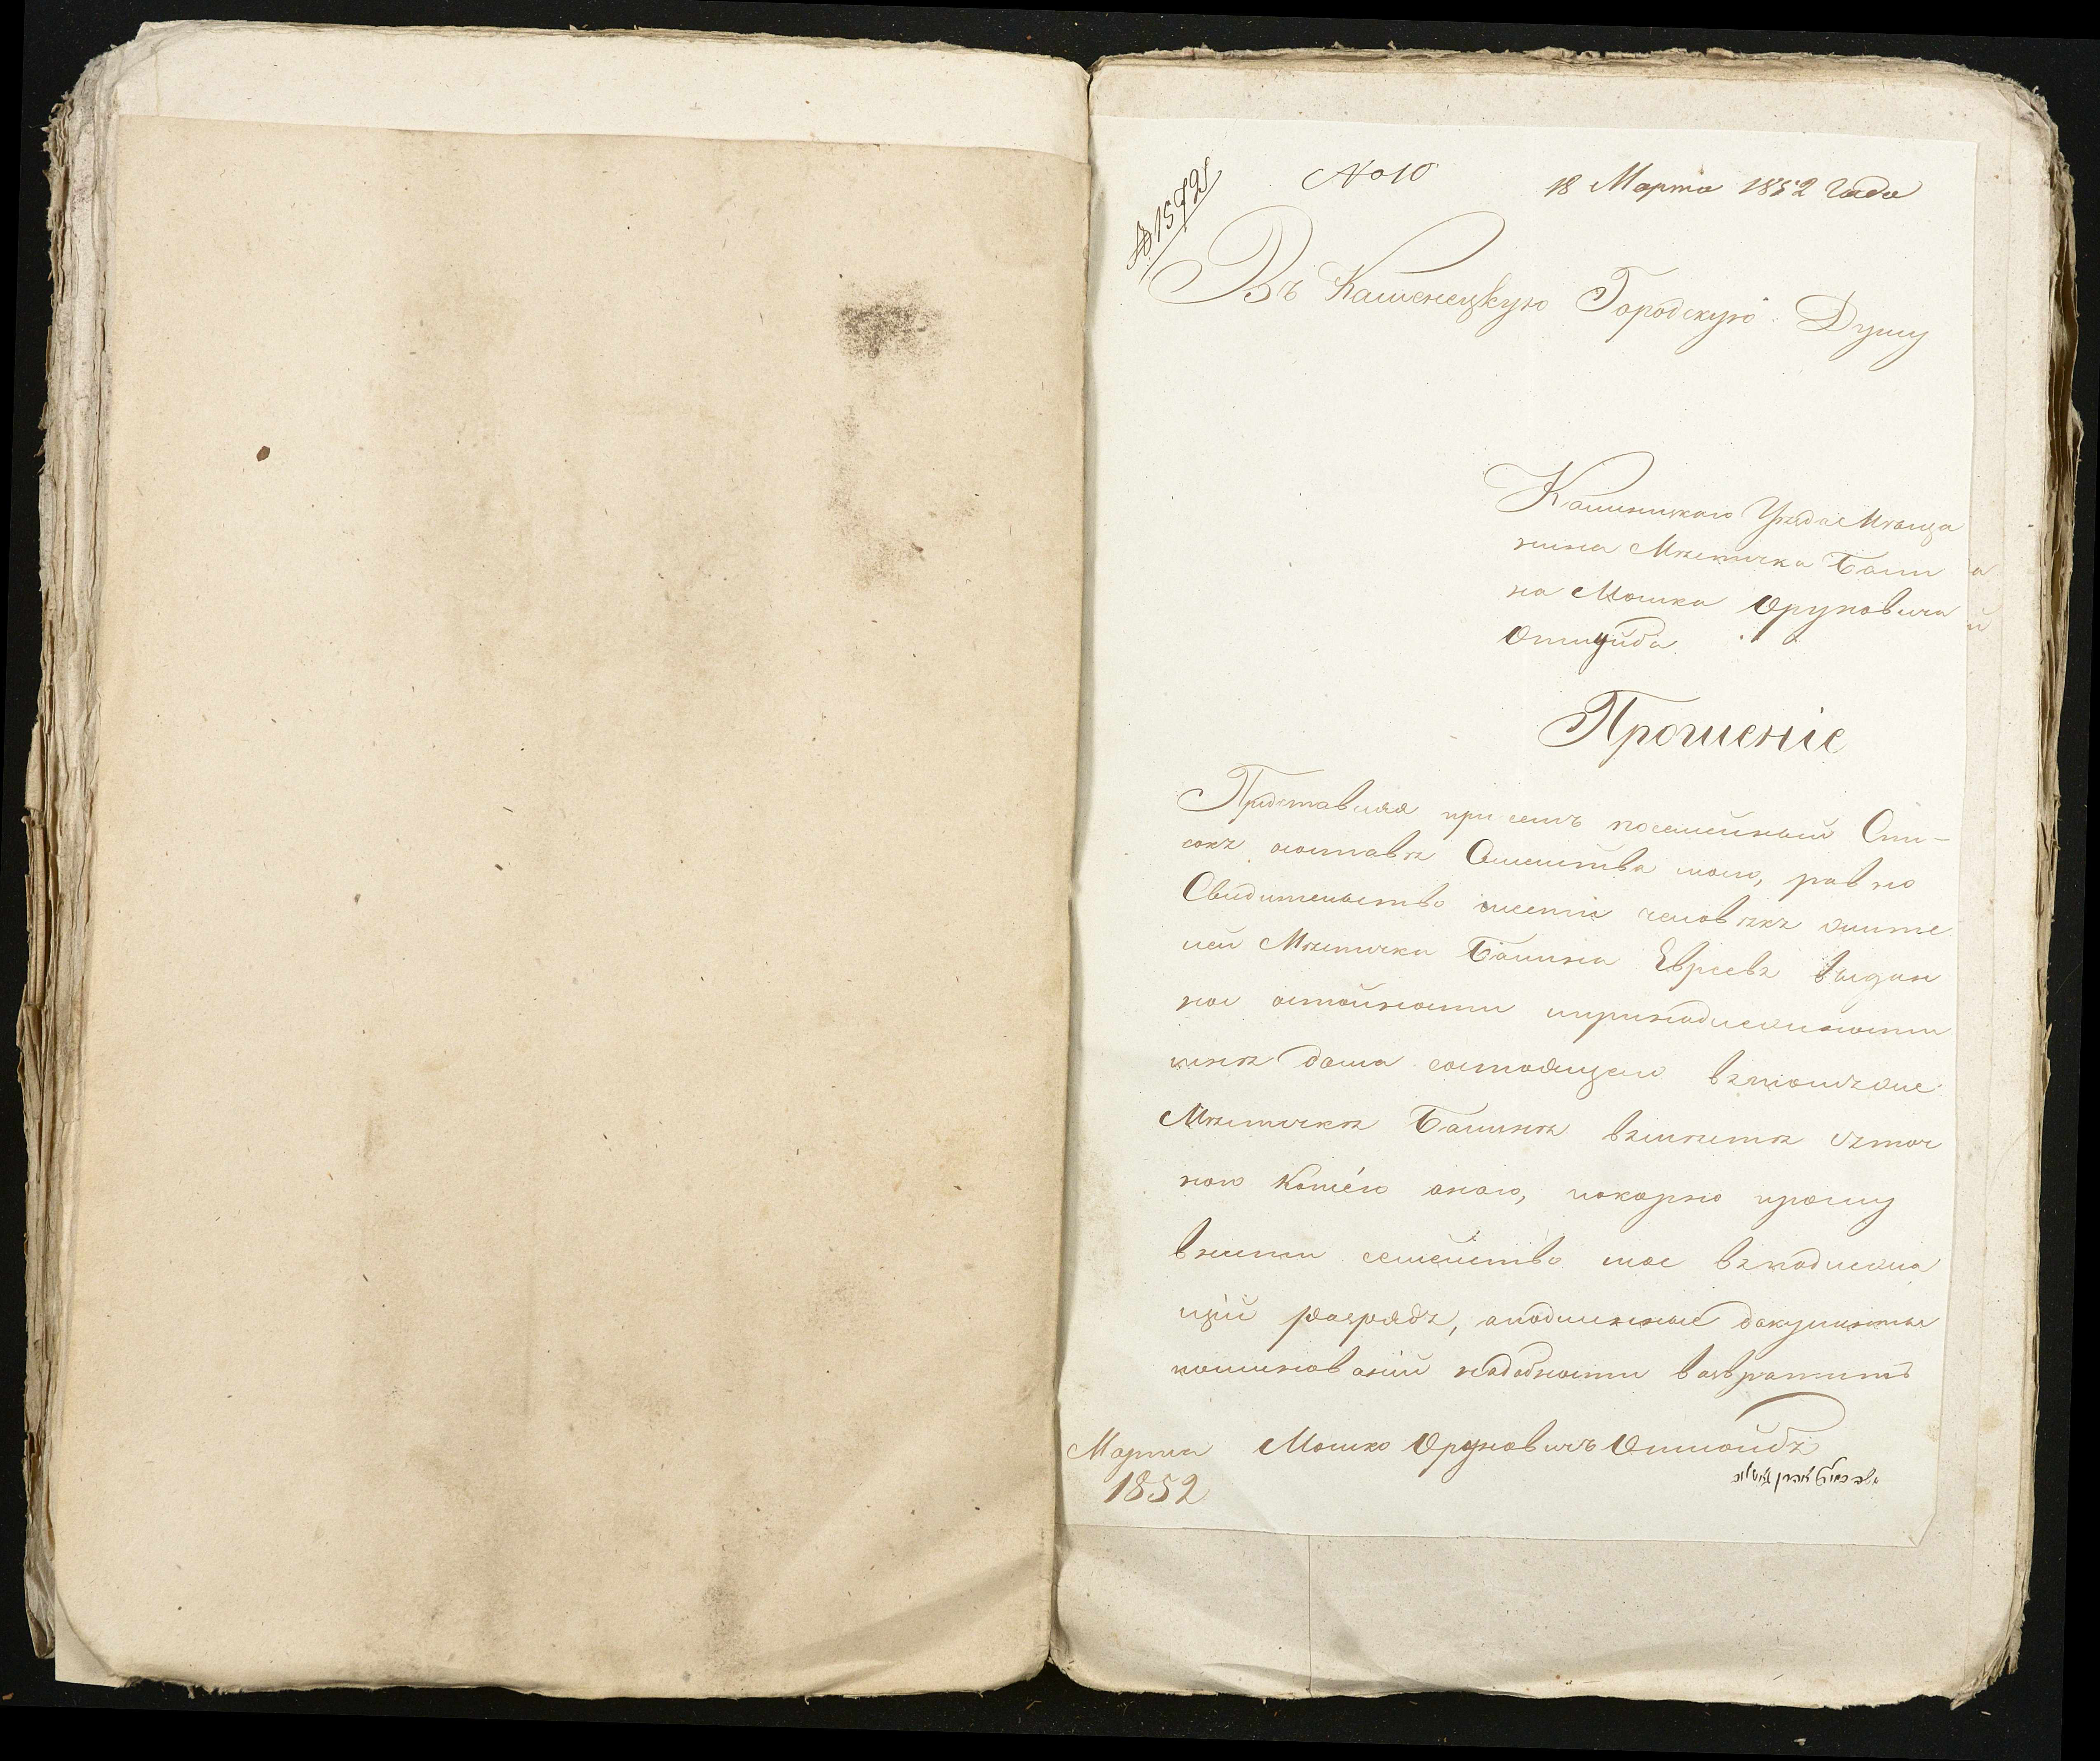 № 1572
№ 10
18 Марта 1852 года
Въ Каменецкую Городскую Думу
Каменицкаго Уезда Мѣща
нина Мѣстичка Бали
на Мошка Оруновича
Прошеніе
Представляя при семъ посемейный Спи-
сокъ осоставѣ Семейства моего, равно
Свидительство шести человѣкъ жите
лей Мѣстичка Балина Евреевъ выдан
ное остоимости и принадлежности
мнѣ дома состоящаго втомъже
Мѣстичкѣ Балинѣ вмѣстѣ съточ
ною Копіею онаго, покорно прошу
внести семейство мое внадлежа
щій разрядъ, аподлинные документы
поминованій надобности возвратить
Марта
1852
Мошко Оруновичъ